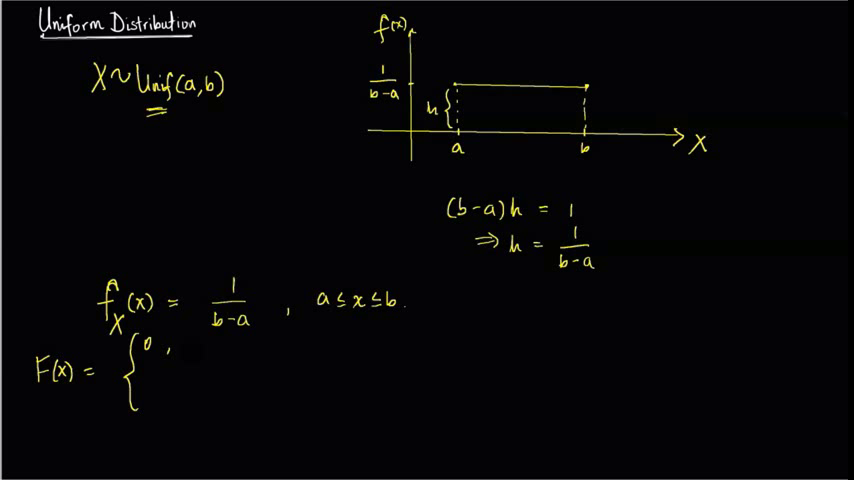 Uniform Distribution
X ~ Unif(a,b)
f(x)
1/(b-a)
h {
a
b
X
(b-a)h = 1
⇒ h = 1/(b-a)
f_X(x) = 1/(b-a) , a ≤ x ≤ b.
F(x) = { 0 ,